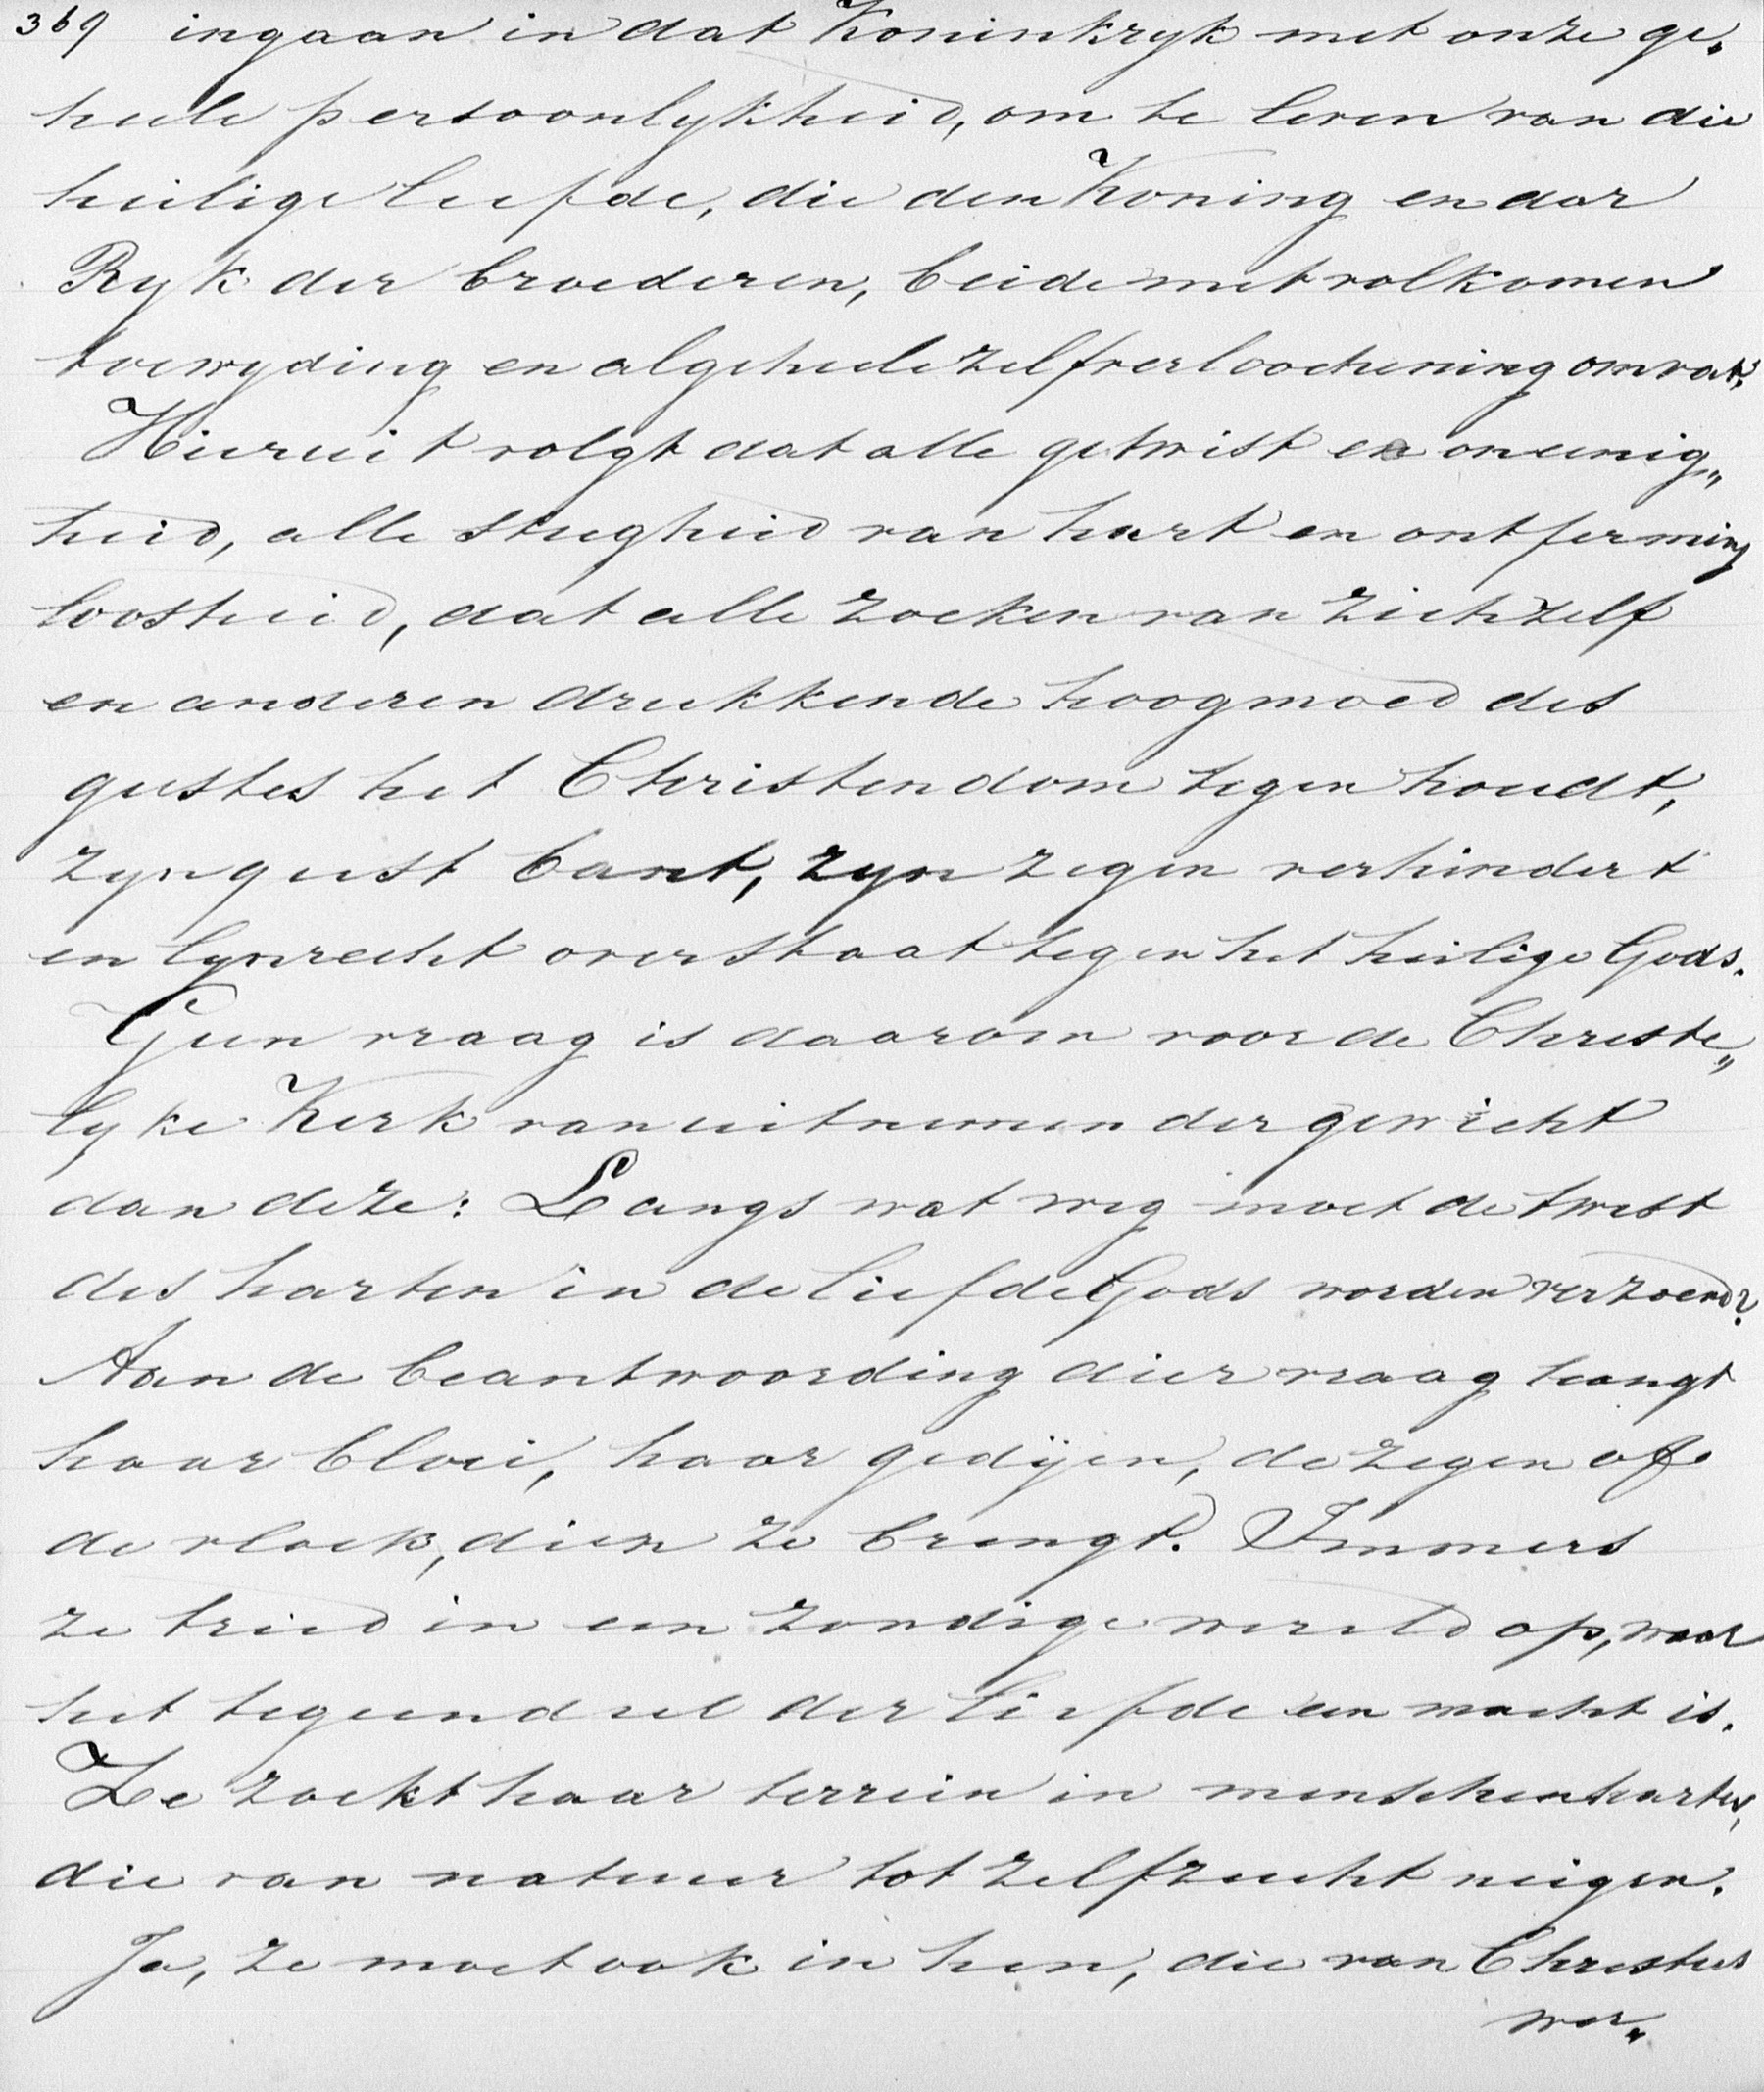 369 ingaan in dat Koninkryk met onze ge„
heele persoonlykheid, om te leven van die
heilige liefde, die den Koning en dar
Ryk der broederen, beide met volkomen
toewyding en algeheele zelfverloochening omvat.
Hieruit volgt dat alle getwist en oneenig„
heid, alle stugheid van hart en ontferming
loosheid, dat alle zoeken van zichzelf
en anderen drukkende hoogmoed des
geestes het Christendom tegen houdt,
zyn geest bant, zyn zegen verhindert
en lynrecht over staat tegen het heilige Gods.
Geen vraag is daarom voor de Christe„
lyke Kerk van uitnemender gewicht
dan deze: Langs wat weg moet de twist
des harten in de liefde Gods worden verzoend?
Aan de beantwoording dier vraag hangt
haar bloei, haar gedijen, de zegen of
de vloek, dien ze brengt. Immers
ze treed in een zondige wereld op, waar
het tegendeel der liefde een macht is.
Ze zoekt haar terrein in menschenharten,
die van natuur tot zelfzucht neigen.
Ja, ze moet ook in hen, die van Christus
wor„